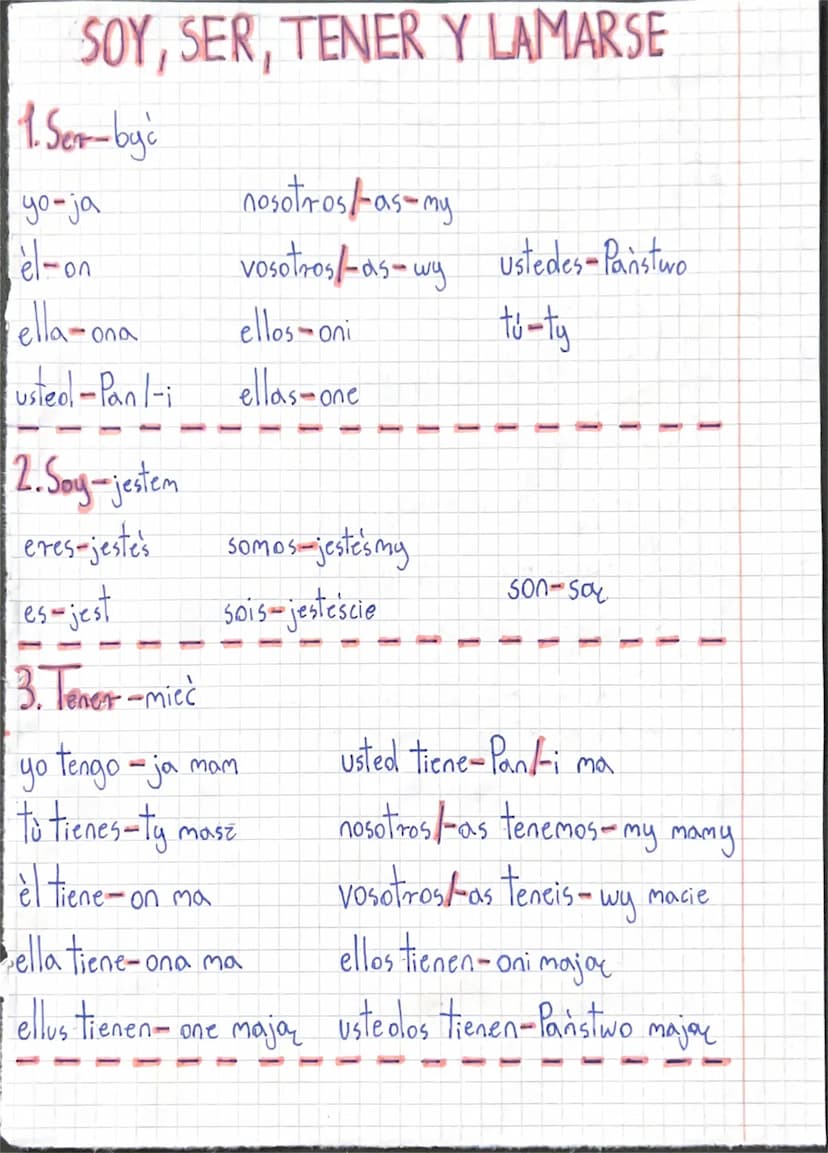 SOY, SER, TENER Y LAMARSE
1. Ser - być
yo - ja nosotros/-as - my
èl - on vosotros/-as - wy ustedes - Państwo
ella - ona ellos - oni tú - ty
usted - Pan/-i ellas - one
2. Soy - jestem
eres - jesteś somos - jesteśmy
es - jest sois - jesteście son - są
3. Tener - mieć
yo tengo - ja mam usted tiene - Pan/-i ma
tù tienes - ty masz nosotros/-as tenemos - my mamy
èl tiene - on ma vosotros/-as teneis - wy macie
ella tiene - ona ma ellos tienen - oni mają
ellus tienen - one mają ustedos tienen - Państwo mają